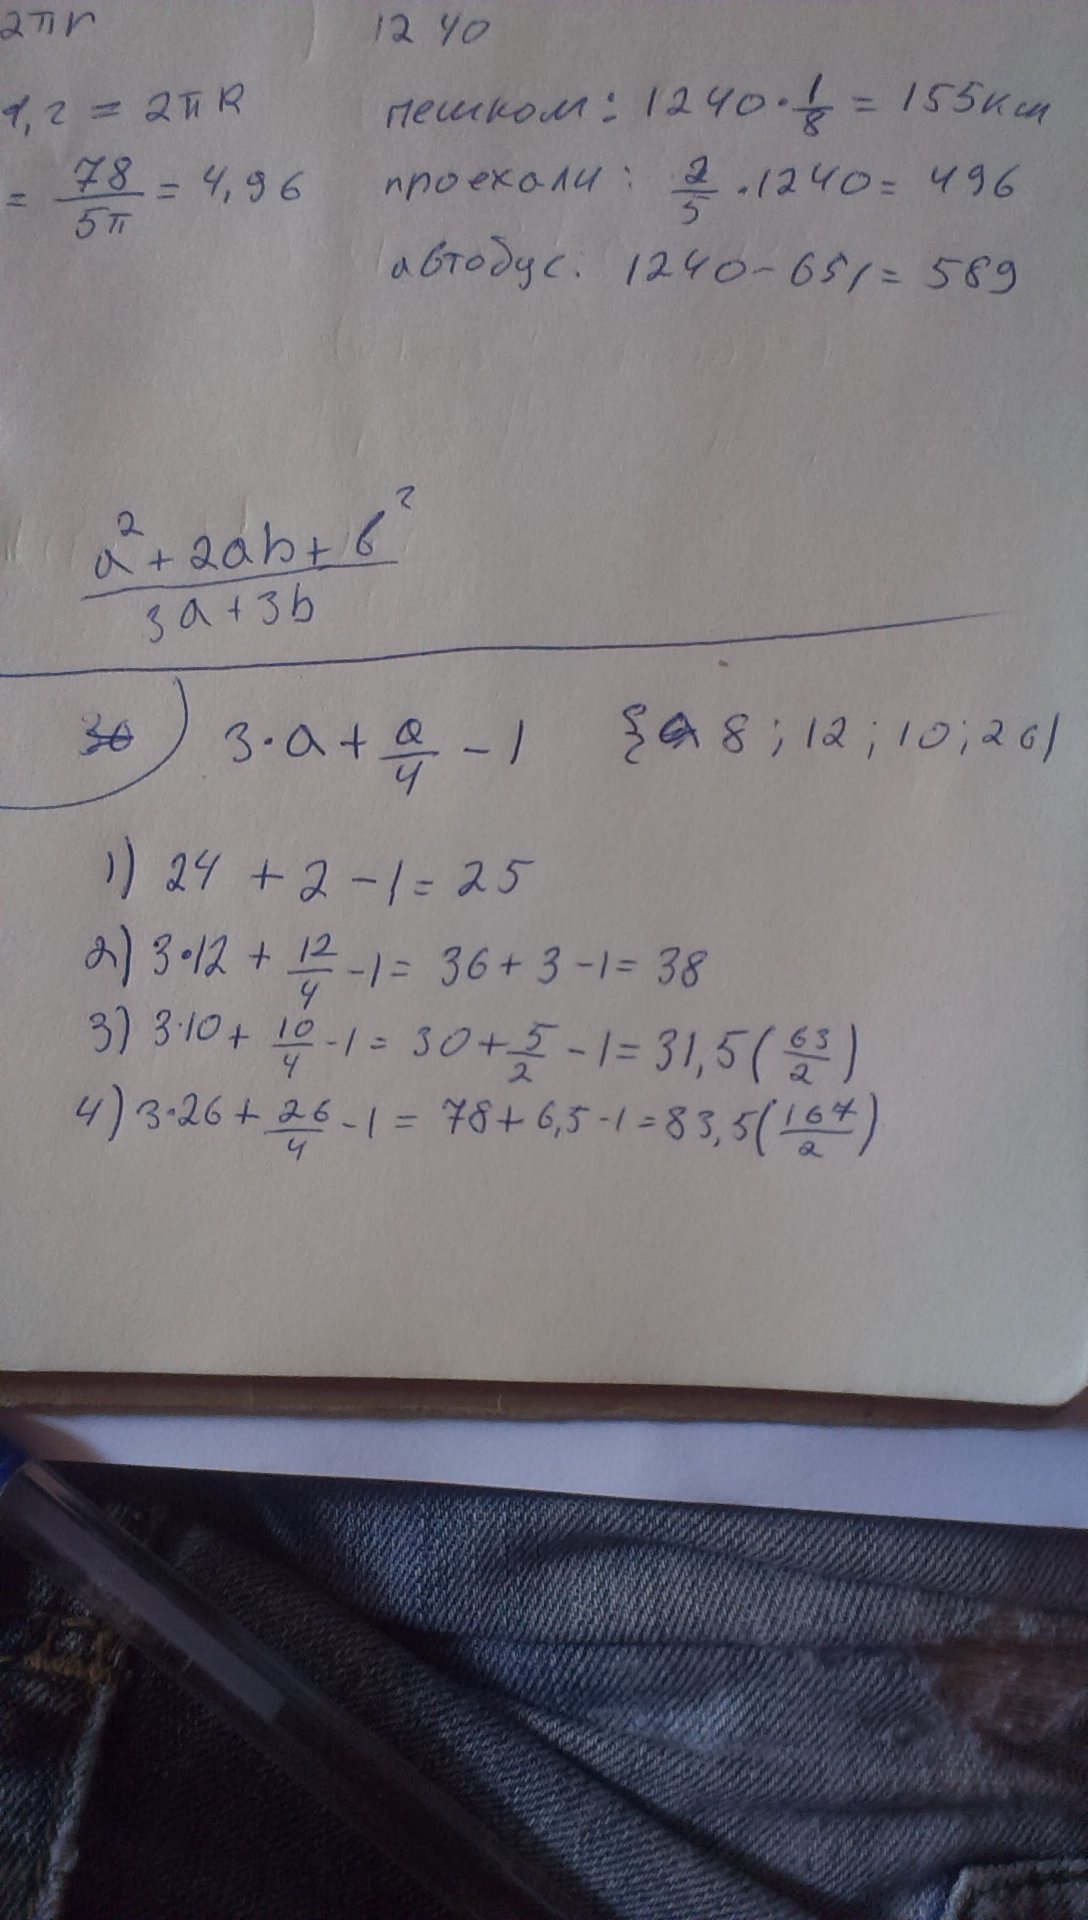 2πr
1,2 = 2πR
= 78/5π = 4,96
1240
пешком: 1240 · 1/8 = 155км
проехали: 2/5 · 1240 = 496
автобус: 1240 - 651 = 589
a² + 2ab + b²
3a + 3b
30) 3 · a + a/4 - 1 {8; 12; 10; 26}
1) 24 + 2 - 1 = 25
2) 3·12 + 12/4 - 1 = 36 + 3 - 1 = 38
3) 3·10 + 10/4 - 1 = 30 + 5/2 - 1 = 31,5 (63/2)
4) 3·26 + 26/4 - 1 = 78 + 6,5 - 1 = 83,5 (167/2)